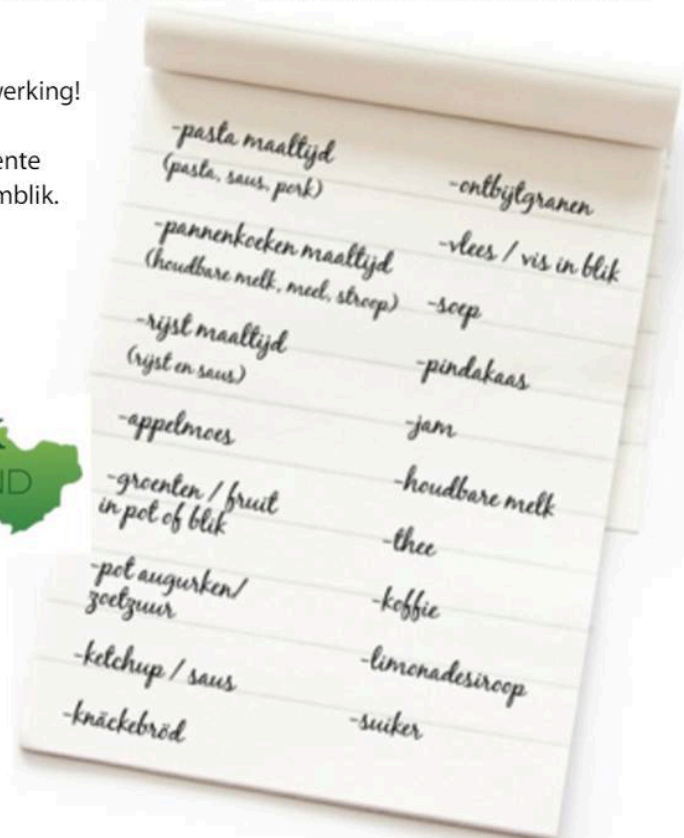 werking!
ente
mblik.
ND
-pasta maaltijd
(pasta, saus, pork)
-pannenkoeken maaltijd
(houdbare melk, meel, stroop)
-rijst maaltijd
(rijst en saus)
-appelmoes
-groenten / fruit
in pot of blik
-pot augurken/
zoetzuur
-ketchup / saus
-knäckebröd
-ontbijtgranen
-vlees / vis in blik
-soep
-pindakaas
-jam
-houdbare melk
-thee
-koffie
-limonadesiroop
-suiker